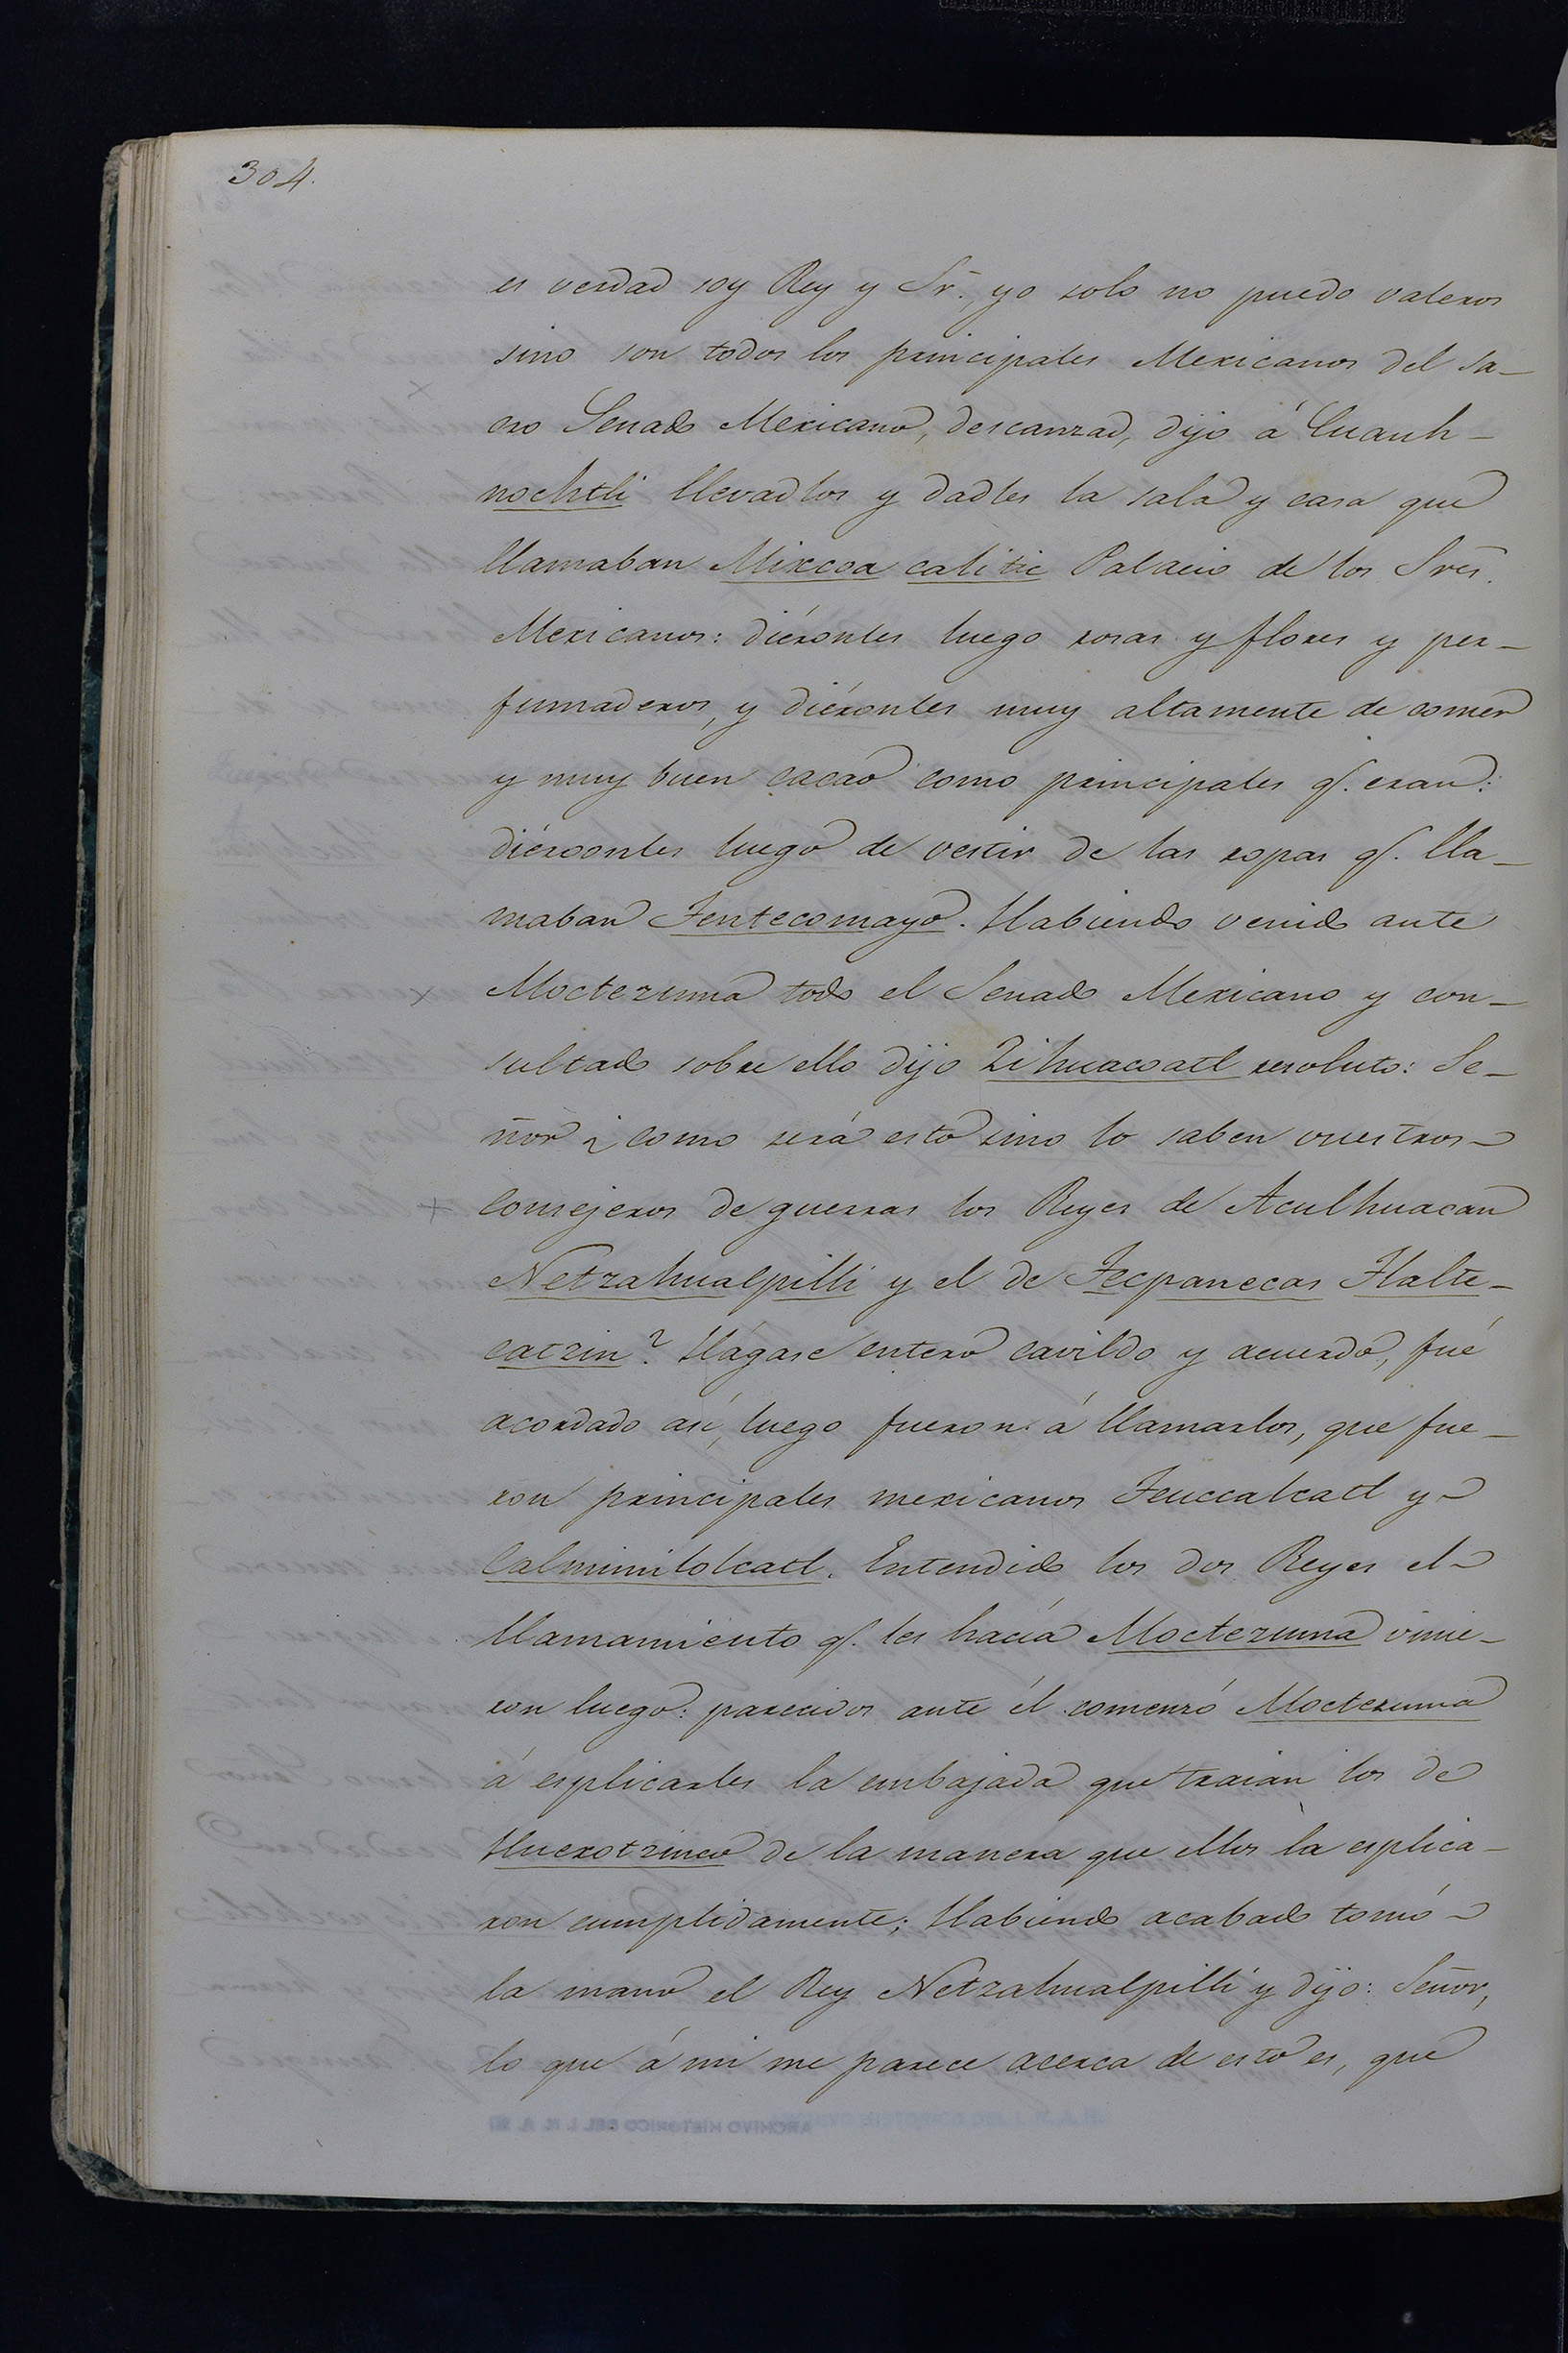 304.
es verdad soy Rey y Sr., yo solo no puedo valeros
sino son todos los principales Mexicanos del sa-
cro Senado Mexicano, descanzad, dijo á Cuauh-
nochtli llevadlos y dadles la sala y casa que
llamaban Mixcoa calitic Palacio de los Sres.
Mexicanos: diéronles luego rosas y flores y per-
fumaderos, y diéronles muy altamente de comer
y muy buen cacao como principales q. eran:
diéroonles luego de vestir de las ropas q. lla-
maban Tentecomayo. Habiendo venido ante
Moctezuma todo el Senado Mexicano y con-
sultado sobre ello dijo Zihuacoatl resoluto: Se-
ñor ¿como será esto sino lo saben vuestros
consejeros de guerras los Reyes de Aculhuacan
Netzahualpilli y el de Tecpanecas Tlalte-
catzin? Hágase entero cavildo y acuerdo, fué
acordado asi, luego fueron á llamarlos, que fue-
ron principales mexicanos Teuccalcatl y
Calmimilolcatl. Entendido los dos Reyes el
llamamiento q. les hacia Moctezuma vinie-
ron luego: parecidos ante él comenzó Moctezuma
á esplicarles la embajada que traian los de
Huexotzinco de la manera que ellos la esplica-
ron cumplidamente; Habiendo acabado tomó
la mano el Rey Netzahualpilli y dijo: Señor,
lo que á mi me parece acerca de esto es, que